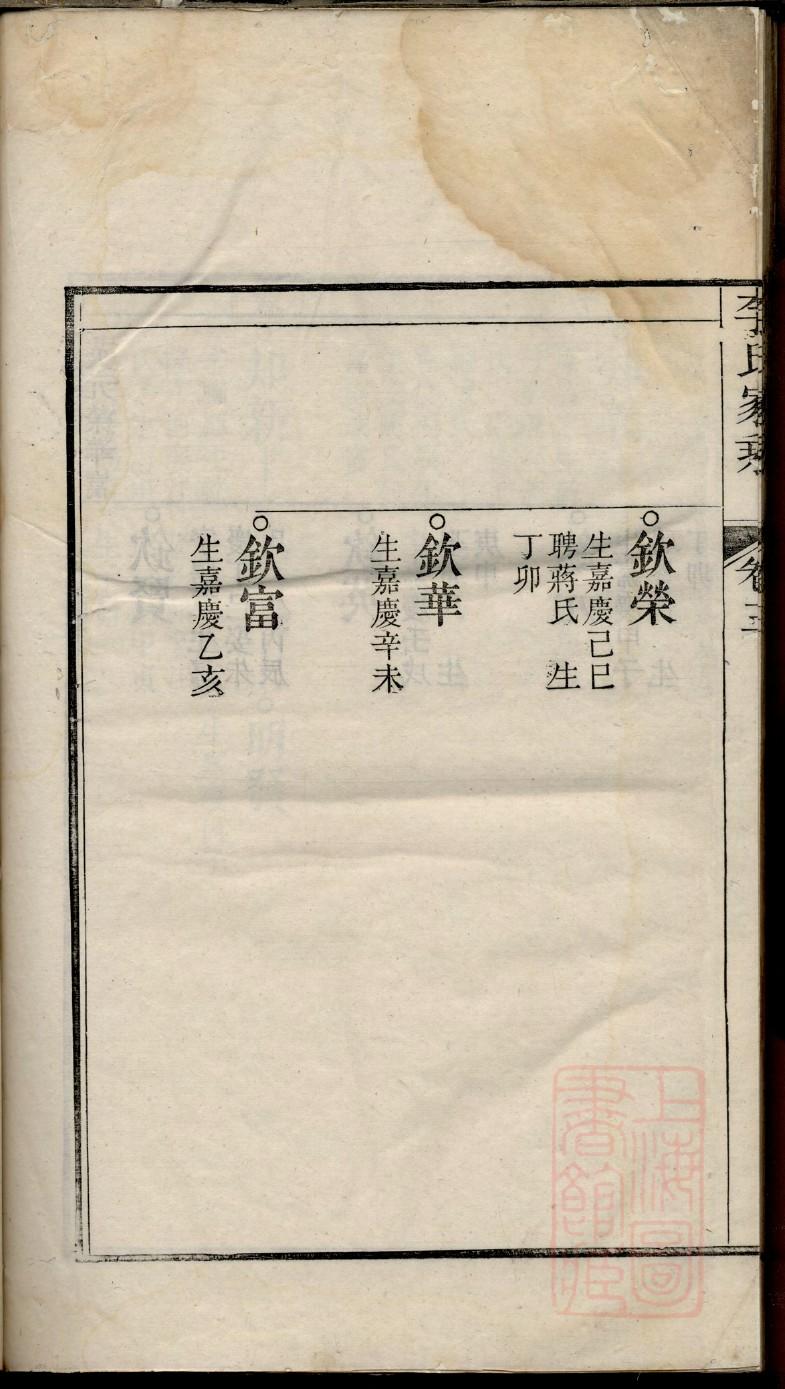 李氏家乘
卷三
欽榮
生嘉慶己巳
聘蔣氏　生
丁卯
欽華
生嘉慶辛未
欽富
生嘉慶乙亥
上海圖
書館藏